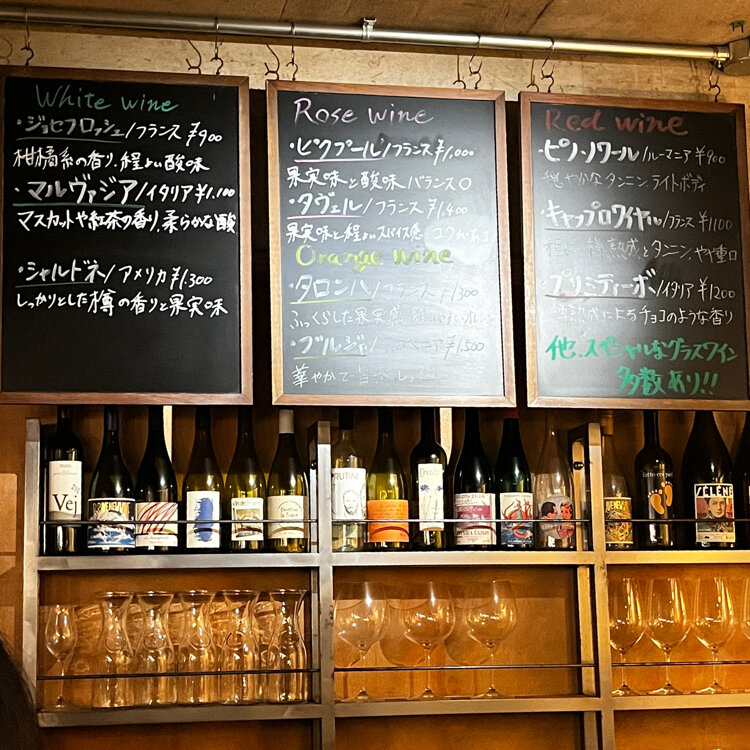 White wine
・ジョセフロッシュ/フランス ¥900
柑橘系の香り、程よい酸味
・マルヴァジア/イタリア ¥1,100
マスカットや紅茶の香り、柔らかな酸
・シャルドネ/アメリカ ¥1,300
しっかりとした樽の香りと果実味
Rose wine
・ピクプール/フランス ¥1,000
果実味と酸味バランス○
・タヴェル/フランス ¥1,400
果実味と程よいスパイス感 コクがある
Orange wine
・タロンハ/フランス ¥1300
ふっくらした果実感
・ブルジャ/ ¥1,500
華やかで
Red wine
・ピノ・ノワール/ルーマニア ¥900
穏やかなタンニン、ライトボディ
・キャップロワイヤル/フランス ¥1100
樽熟成とタンニン、やや重口
・プリミティーボ/イタリア ¥1200
樽熟成によるチョコのような香り
他、スペシャルなグラスワイン
多数あり!!
2020
Vej
RUTINI
SELENE